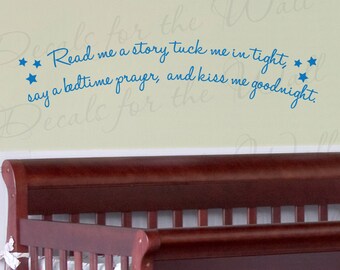 Read me a story tuck me in tight,
say a bedtime prayer, and kiss me goodnight.
Decals for the Wall